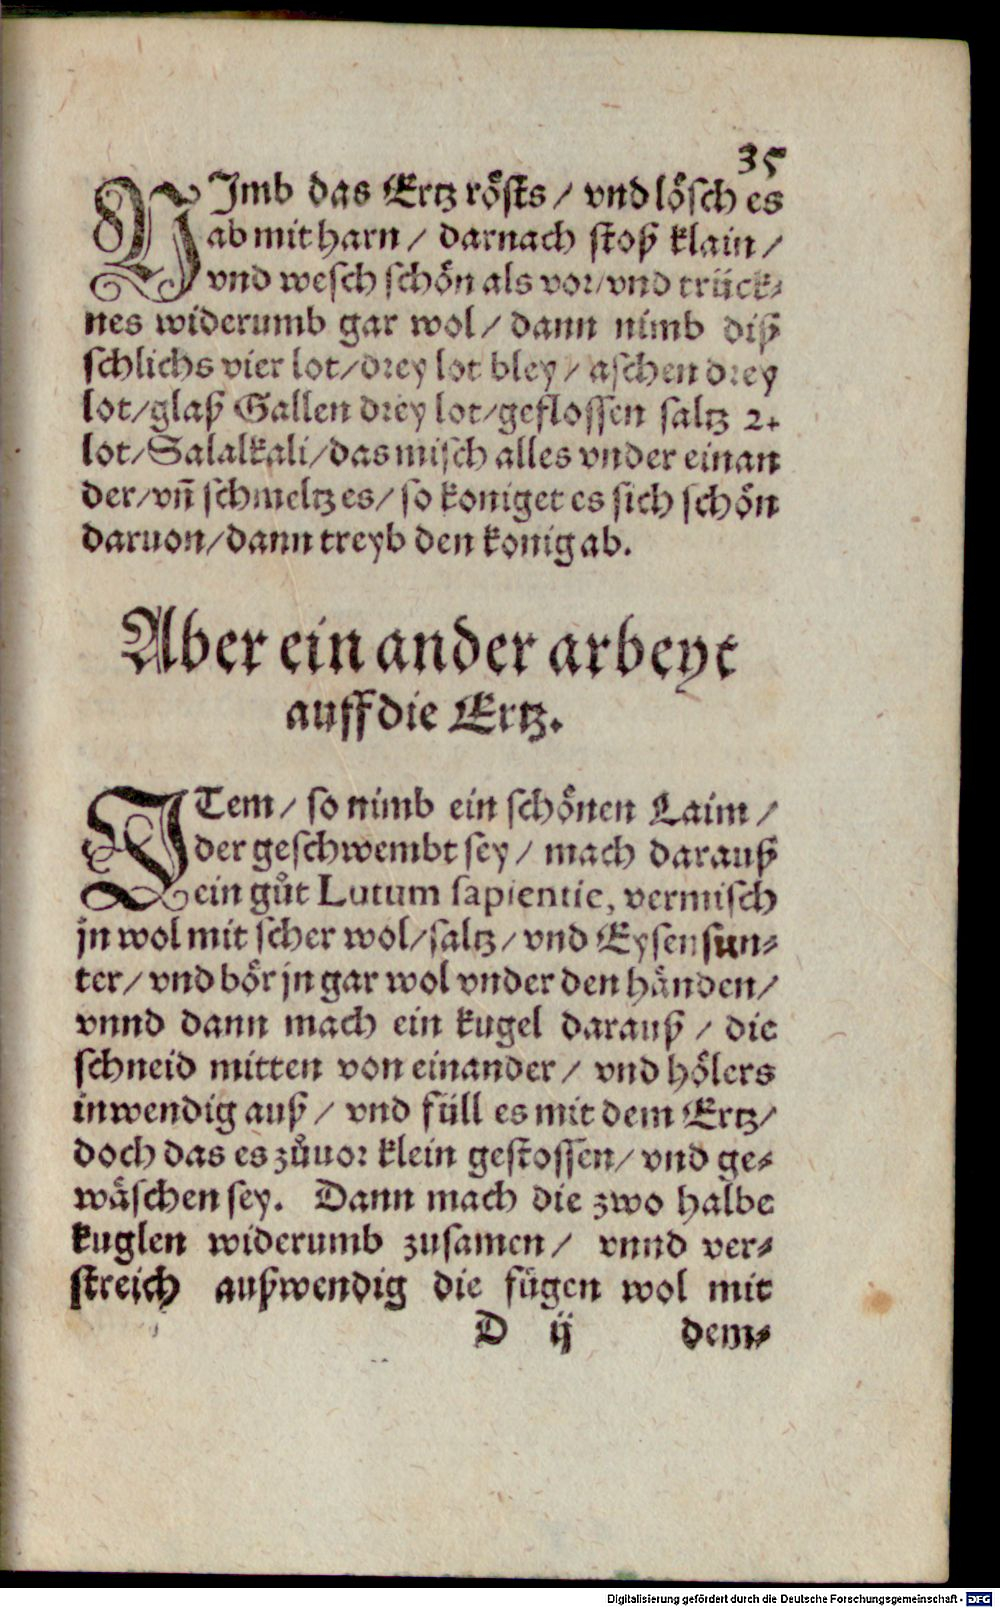 35
NImb das Ertz rösts / vnd lösch es
ab mit harn / darnach stoß klain /
vnd wesch schön als vor / vnd trück-
nes widerumb gar wol / dann nimb diß
schlichs vier lot / drey lot bley / aschen drey
lot / glaß Gallen drey lot / geflossen saltz 2.
lot / Salalkali / das misch alles vnder einan
der / vñ schmeltz es / so koniget es sich schön
daruon / dann treyb den konig ab.
Aber ein ander arbeyt
auff die Ertz.
ITem / so nimb ein schönen Laim /
der geschwembt sey / mach darauß
ein gůt Lutum sapientie, vermisch
jn wol mit scher wol / saltz / vnd Eysen sun-
ter / vnd bör jn gar wol vnder den händen /
vnnd dann mach ein kugel darauß / die
schneid mitten von einander / vnd hölers
inwendig auß / vnd füll es mit dem Ertz /
doch das es zůuor klein gestossen / vnd ge-
wäschen sey. Dann mach die zwo halbe
kuglen widerumb zusamen / vnnd ver-
streich außwendig die fügen wol mit
D ij dem-
Digitalisierung gefördert durch die Deutsche Forschungsgemeinschaft - DFG